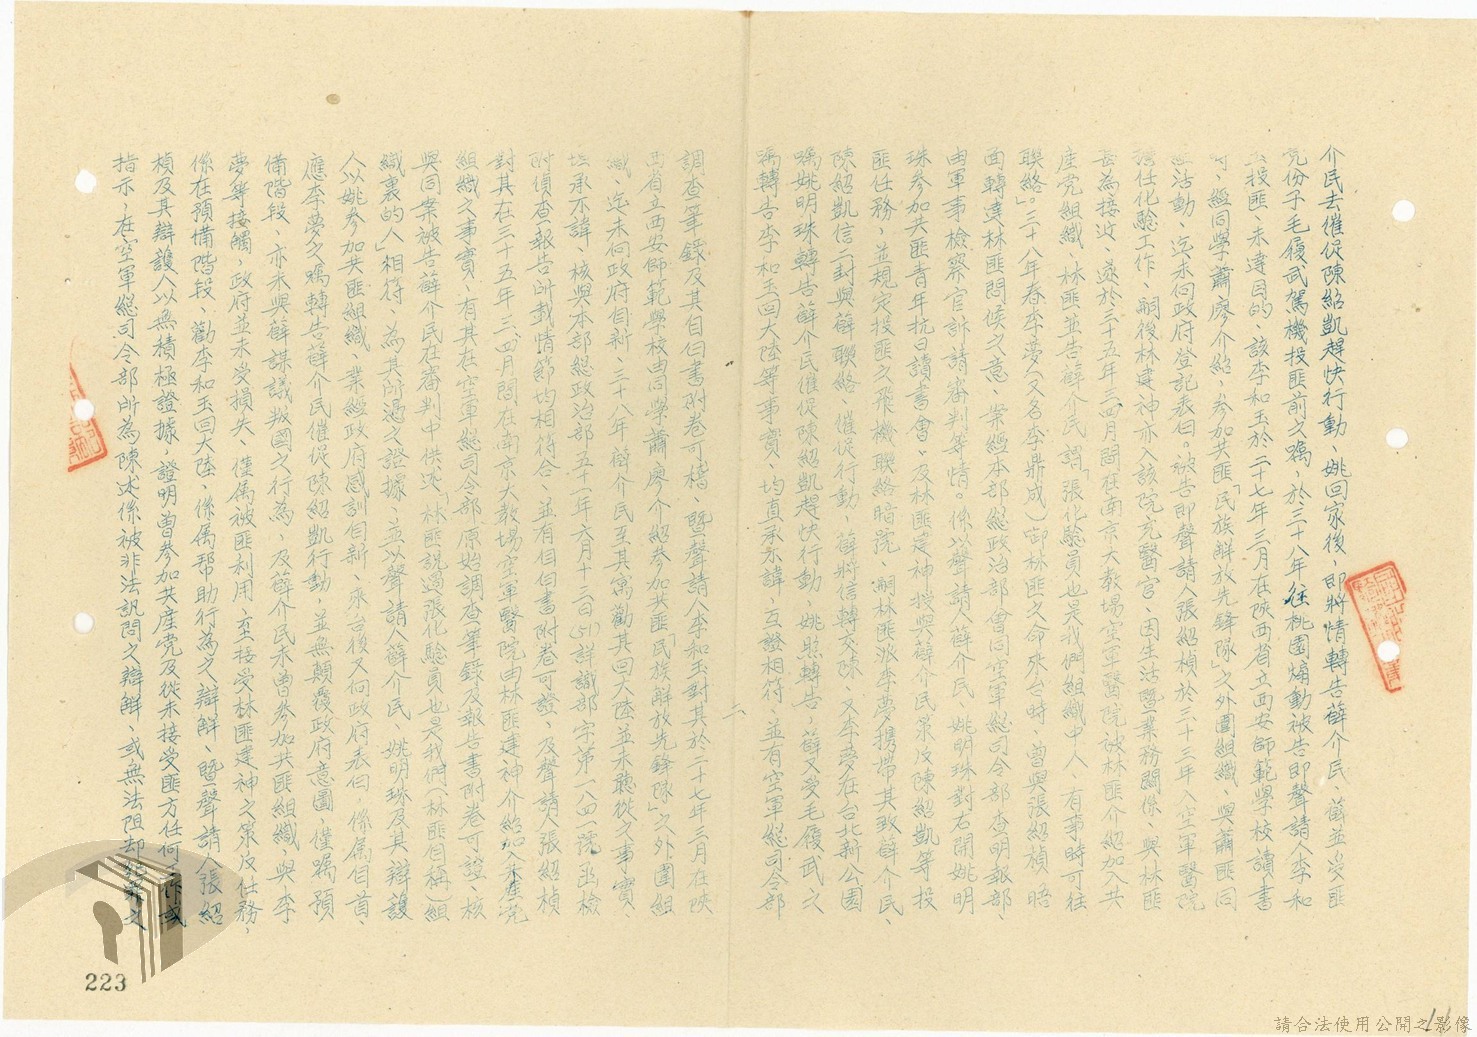 介民去催促陳紹凱趕快行動、姚回家後、即將情轉告薛介民、薛並受匪
党份子毛履武駕機投匪前之囑、於三十八年往桃園煽動被告即聲請人李和
玉投匪、未達目的、該李和玉於二十七年三月在陝西省立西安師範學校讀書
時、經同學蕭廖介紹、參加共匪「民族解放先鋒隊」之外圍組織、與蕭匪同
組活動、迄未向政府登記表白。被告即聲請人張紹楨於三十三年入空軍醫院
擔任化驗工作、嗣後林建神亦入該院充醫官、因生活暨業務關係、與林匪
甚為接近、遂於三十五年三四月間在南京大教場空軍醫院被林匪介紹加入共
產党組織、林匪並告薛介民謂「張化驗員也是我們組織中人、有事時可往
聯絡」。三十八年春李夢(又名李鼎成)卸林匪之命來台時、曾與張紹楨晤
面轉達林匪問候之意、案經本部總政治部會同空軍總司令部查明報部、
由軍事檢察官訴請審判等情。係以聲請人薛介民、姚明珠對右開姚明
珠參加共匪青年抗日讀書會、及林匪建神授與薛介民策反陳紹凱等投
匪任務、並規定投匪之飛機聯絡暗號、嗣林匪派李夢攜帶其致薛介民、
陳紹凱信二封與薛聯絡、催促行動、薛將信轉交陳、又李夢在台北新公園
囑姚明珠轉告薛介民催促陳紹凱趕快行動、姚照轉告、薛又受毛履武之
囑轉告李和玉回大陸等事實、均直承不諱、互證相符、並有空軍總司令部
二
調查筆錄及其自白書附卷可稽、暨聲請人李和玉對其於二十七年三月在陝
西省立西安師範學校由同學蕭廖介紹參加共匪「民族解放先鋒隊」之外圍組
織、迄未向政府自新、三十八年薛介民至其寓勸其回大陸、並未聽從之事實、
坦承不諱、核與本部總政治部五十一年六月十三日(51)詳識部字第一八四一號函檢
附偵查報告所載情節均相符合、並有自白書附卷可證、及聲請人張紹楨
對其在三十五年三、四月間在南京大教場空軍醫院由林匪建神介紹加入共產党
組織之事實、有其在空軍總司令部原始調查筆錄及報告書附卷可證、核
與同案被告薛介民在審判中供述、「林匪說過張化驗員也是我們(林匪自稱)組
織裏的人」相符、為其所憑之證據、並以聲請人薛介民、姚明珠及其辯護
人以姚參加共匪組織、業經政府感訓自新、來台後又向政府表白、係屬自首、
應李夢之囑轉告薛介民催促陳紹凱行動、並無顛覆政府意圖、僅屬預
備階段、亦未與薛謀議叛國之行為、及薛介民未曾參加共匪組織、與李
夢等接觸、政府並未受損失、僅屬被匪利用、至接受林匪建神之策反任務、
係在預備階段、勸李和玉回大陸、係屬帮助行為之辯解、暨聲請人張紹
楨及其辯護人以無積極證據、證明曾參加共產党及從未接受匪方任何工作或
指示、在空軍總司令部所為陳述係被非法訊問之辯解、或無法阻却犯罪之
223
11
請合法使用公開之影像